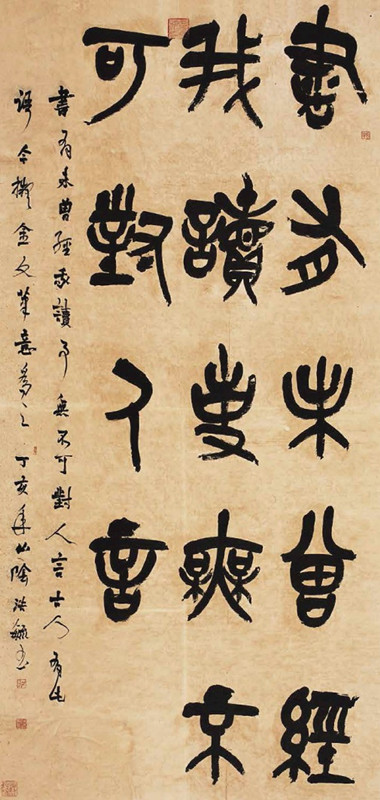 書有未曾經
我讀事無不
可對人言
書有未曾經我讀事無不可對人言古人有此
語今擬金文筆意為之丁亥年山陰書